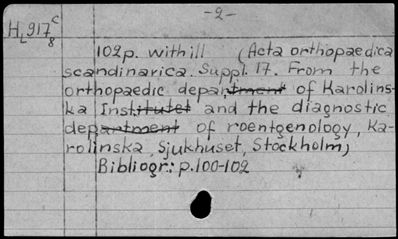 -2-
HL917c
8
102p. with ill (Acta orthopaedica
scandinarica. Suppl. 17. From the
orthopaedic department of Karolins-
ka Institutet and the diagnostic
department of roentgenology, Ka-
rolinska, Sjukhuset, Stockholm)
Bibliogr: p.100-102